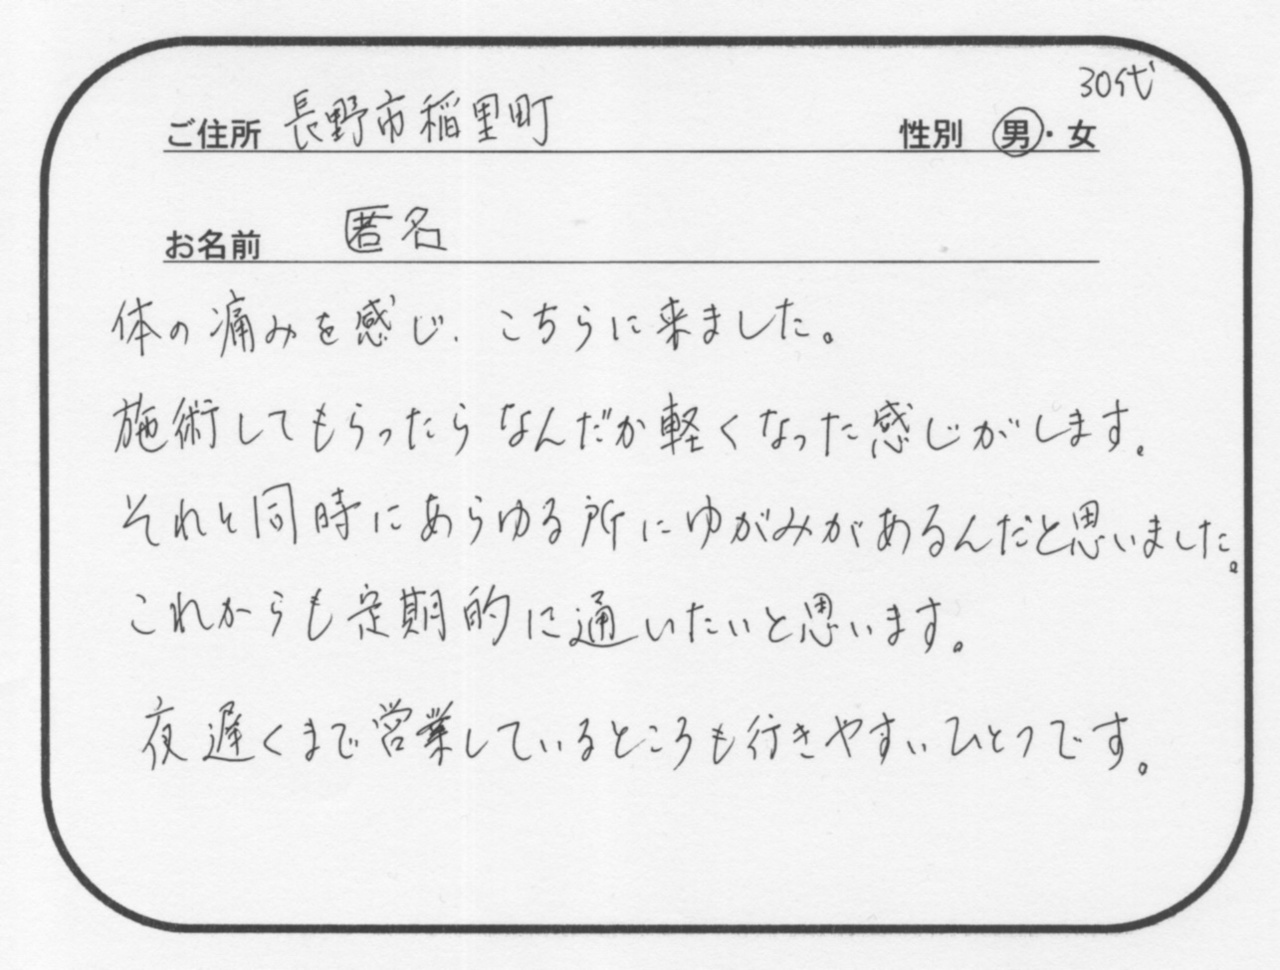 30代
ご住所 長野市稲里町 性別 男・女
お名前 匿名
体の痛みを感じ、こちらに来ました。
施術してもらったらなんだか軽くなった感じがします。
それと同時にあらゆる所にゆがみがあるんだと思いました。
これからも定期的に通いたいと思います。
夜遅くまで営業しているところも行きやすいひとつです。